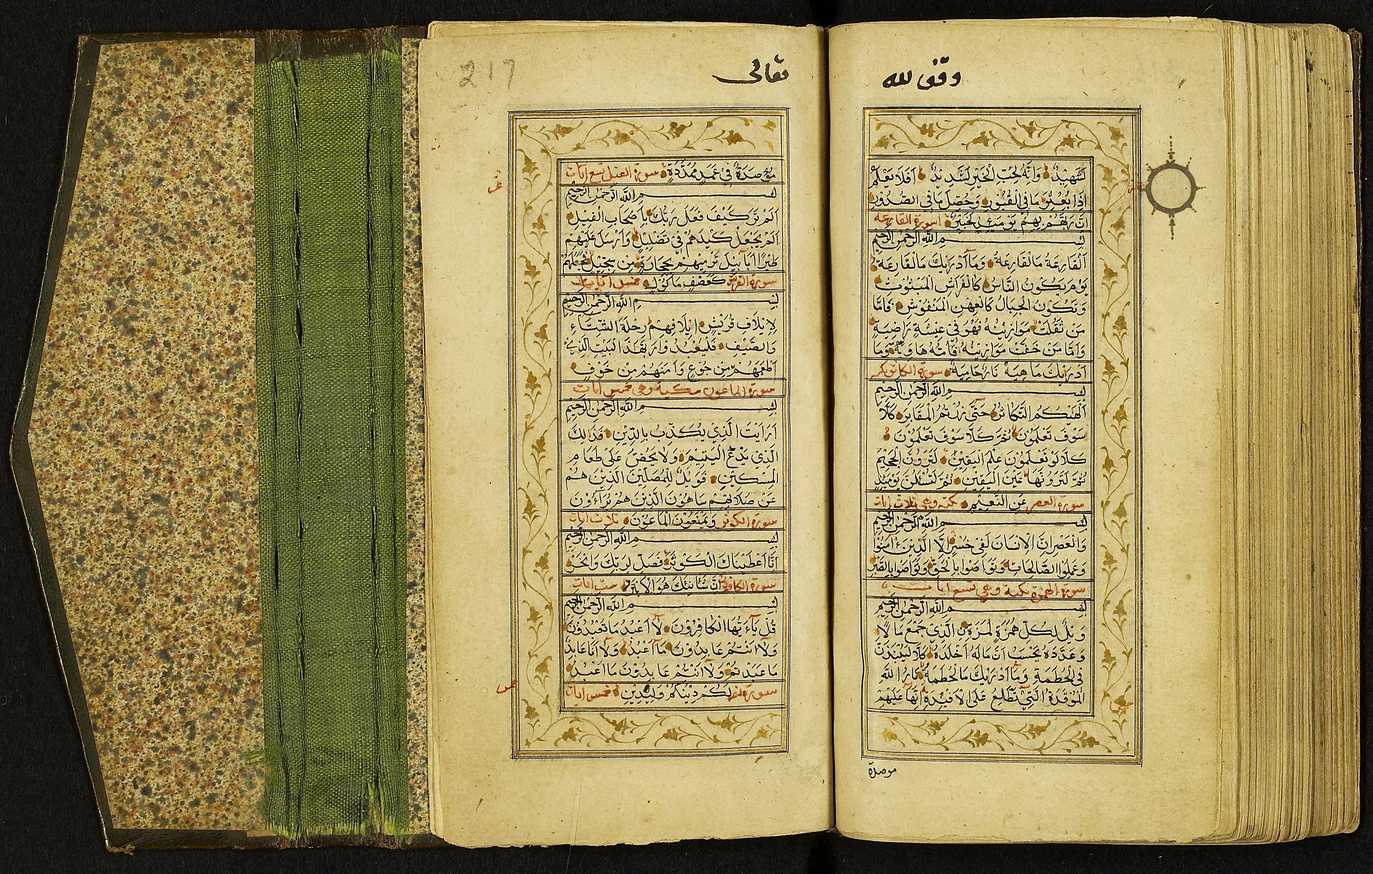 وقف لله
لشهيد وانه لحب الخير لشديد افلا يعلم
اذا بعثر ما في القبور وحصل ما في الصدور
ان ربهم بهم يومئذ لخبير سورة القارعة
بسم الله الرحمن الرحيم
القارعة ما القارعة وما ادريك ما القارعة
يوم يكون الناس كالفراش المبثوث
وتكون الجبال كالعهن المنفوش فاما
من ثقلت موازينه فهو في عيشة راضية
واما من خفت موازينه فامه هاوية وما
ادريك ماهية نار حامية سورة التكاثر
بسم الله الرحمن الرحيم
الهيكم التكاثر حتى زرتم المقابر كلا
سوف تعلمون ثم كلا سوف تعلمون
كلا لو تعلمون علم اليقين لترون الجحيم
ثم لترونها عين اليقين ثم لتسئلن يومئذ
سورة العصر عن النعيم مكية وهي ثلاث ايات
بسم الله الرحمن الرحيم
والعصر ان الانسان لفي خسر الا الذين امنوا
وعملوا الصالحات وتواصوا بالحق وتواصوا بالصبر
سورة الهمزة مكية وهي تسع ايات
بسم الله الرحمن الرحيم
ويل لكل همزة لمزة الذي جمع مالا
وعدده يحسب ان ماله اخلده كلا لينبذن
في الحطمة وما ادريك ما الحطمة نار الله
الموقدة التي تطلع على الافئدة انها عليهم
موصدة
تعالى
217
مؤصدة في عمد ممددة سورة الفيل ايات
بسم الله الرحمن الرحيم
الم تر كيف فعل ربك باصحاب الفيل
الم يجعل كيدهم في تضليل وارسل عليهم
طيرا ابابيل ترميهم بحجارة من سجيل فجعلهم
سورة القريش كعصف ماكول خمس ايات
بسم الله الرحمن الرحيم
لايلاف قريش ايلافهم رحلة الشتاء
والصيف فليعبدوا رب هذا البيت الذي
اطعمهم من جوع وامنهم من خوف
سورة الماعون مكية وهي خمس ايات
بسم الله الرحمن الرحيم
ارايت الذي يكذب بالدين فذلك
الذي يدع اليتيم ولا يحض على طعام
المسكين فويل للمصلين الذين هم
عن صلاتهم ساهون الذين هم يراءون
سورة الكوثر ويمنعون الماعون ثلاث ايات
بسم الله الرحمن الرحيم
انا اعطيناك الكوثر فصل لربك وانحر
سورة الكافرون ان شانئك هو الابتر ست ايات
بسم الله الرحمن الرحيم
قل ياءيها الكافرون لا اعبد ما تعبدون
ولا انتم عابدون ما اعبد ولا انا عابد
ما عبدتم ولا انتم عابدون ما اعبد
سورة لكم دينكم ولي دين خمس ايات